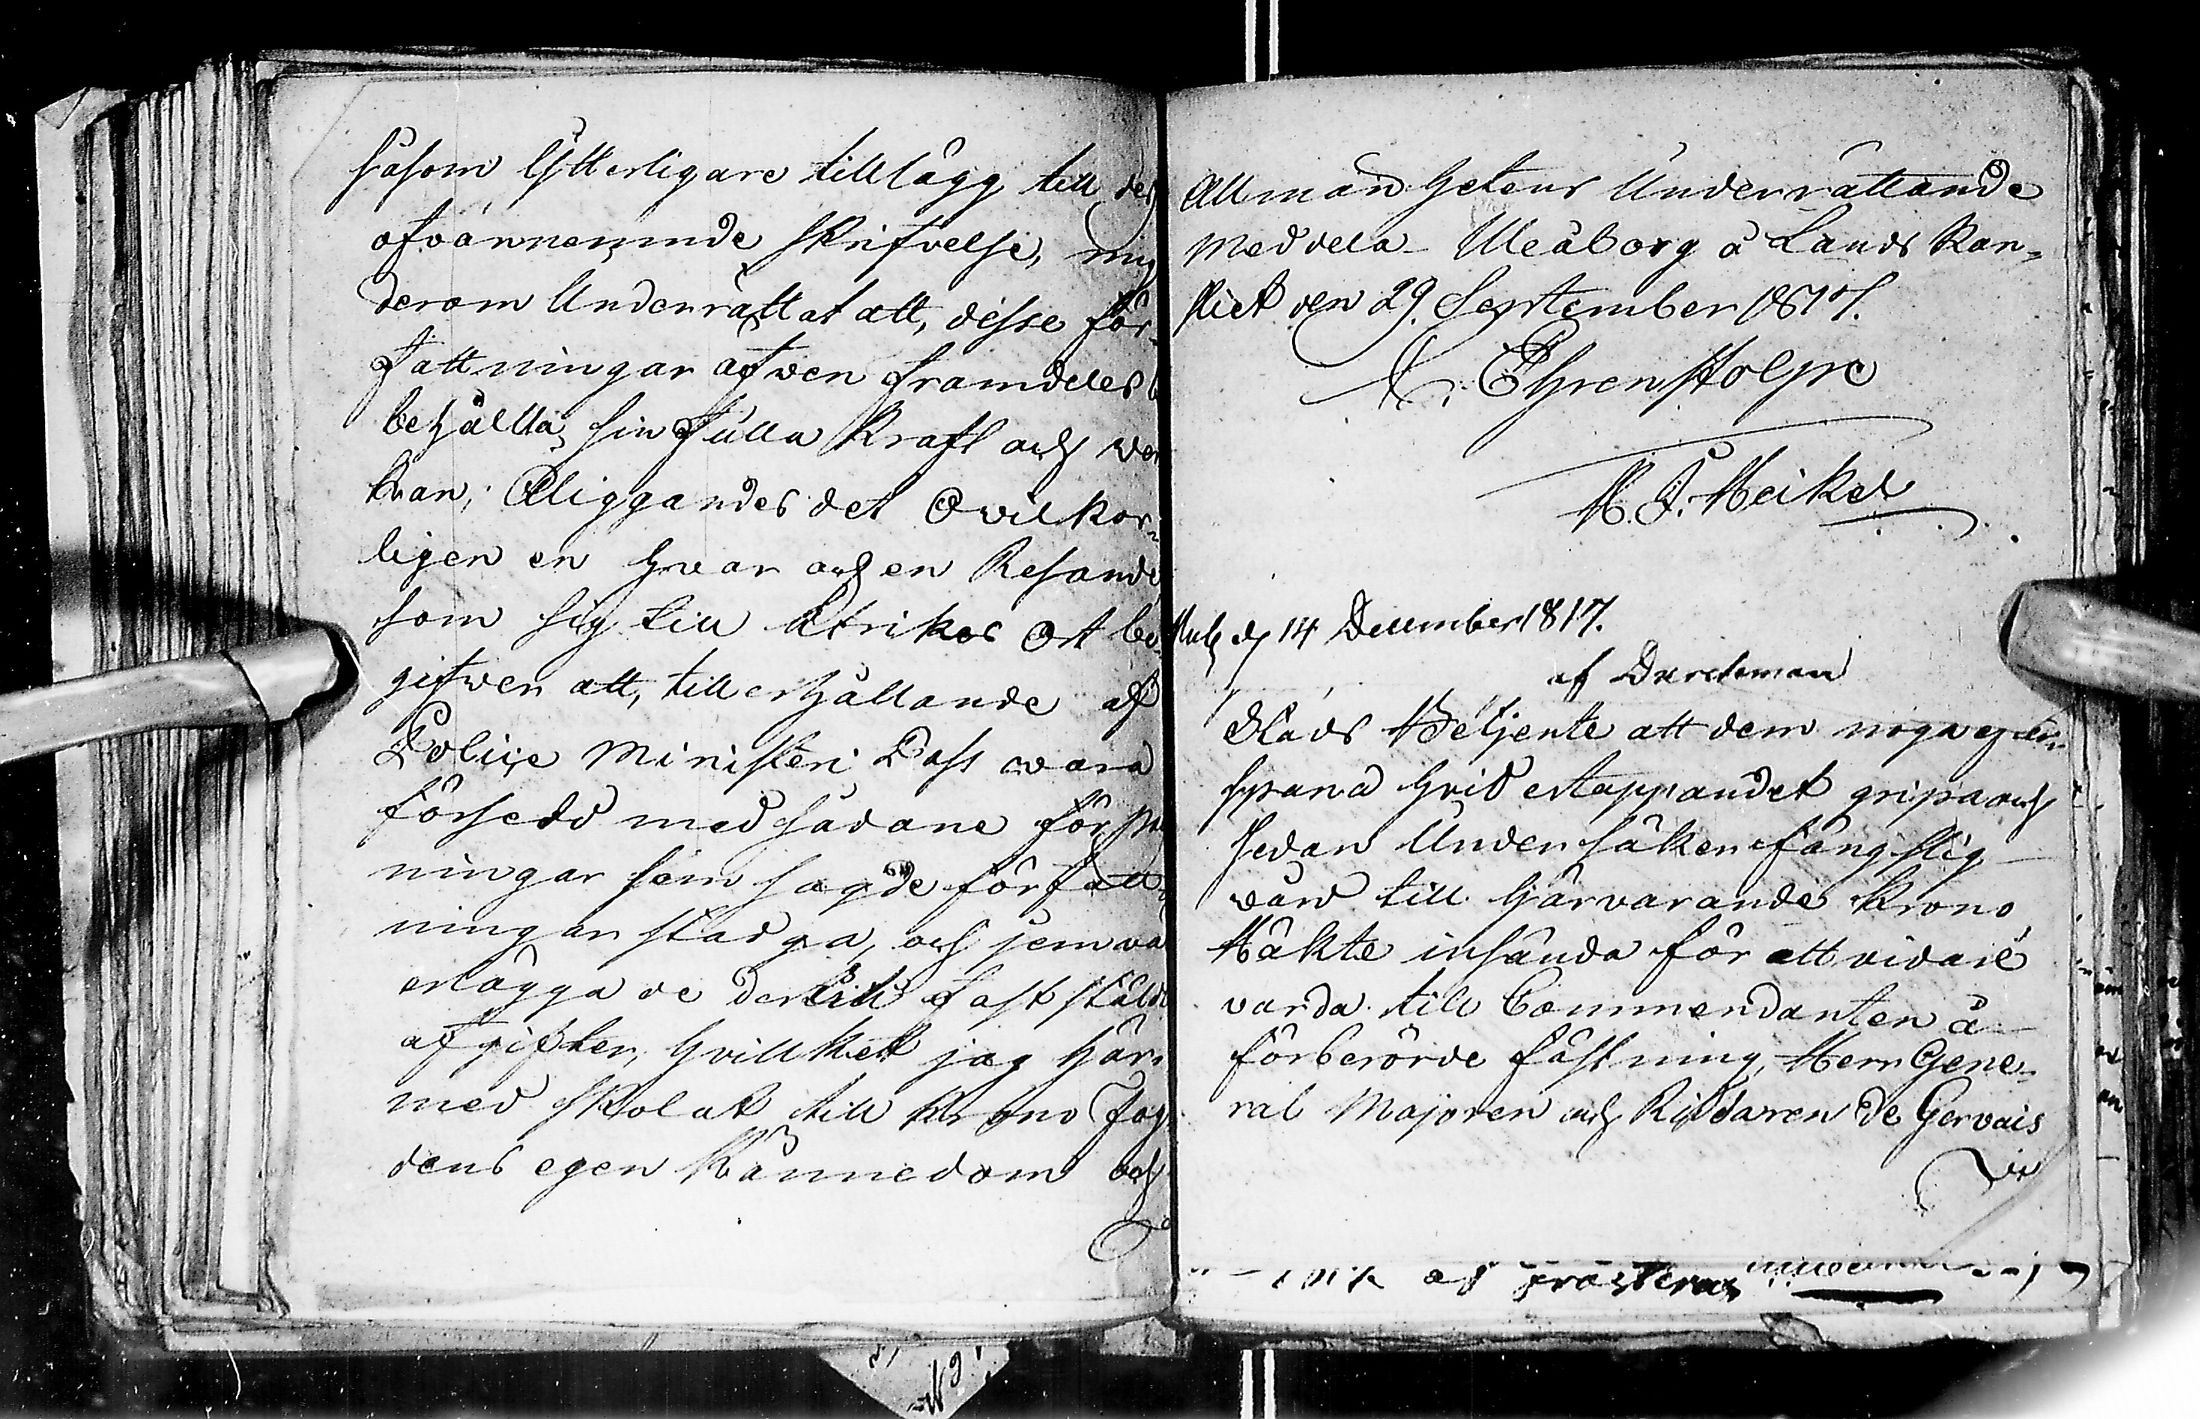 såsom Ytterligare tillägg till den
ofvannemnde skrifvelse, mig
derom Underrättat att, desse för-
fattningar äfven framdeles
behålla sin fulla kraft och ver
kan; Åliggandes det Ovilkor-
ligen en hvar och en Resande
som sig till Utrikes Ort be-
gifver att, till erhållande af
Police Ministeri Pass vara
försedd med sådane för
ningar som sagde författ-
ningar stadga, och jemväl
erlägga de dertill fastställde
afgifter, hvillket jag här-
med skolat till Krono Fog-
dens egen Kännedom och
Allmänhetens Underrättande
meddela. Uleåborg å Lands Kan-
sliet den 29. September 1817.
Ehrenstolpe
M. J. Heikel
Publ d 14 December 1817.
af Durchman
Stads Betjente att dem noga efter-
spana hvid ertappandet gripa och
sedan Under säker fångslig
vård till härvarande Krono
Häkte insända för att vidare
varda till Commendanten å
förberörde fästning, Herr Gene-
ral Majoren och Riddaren de Gervais
af